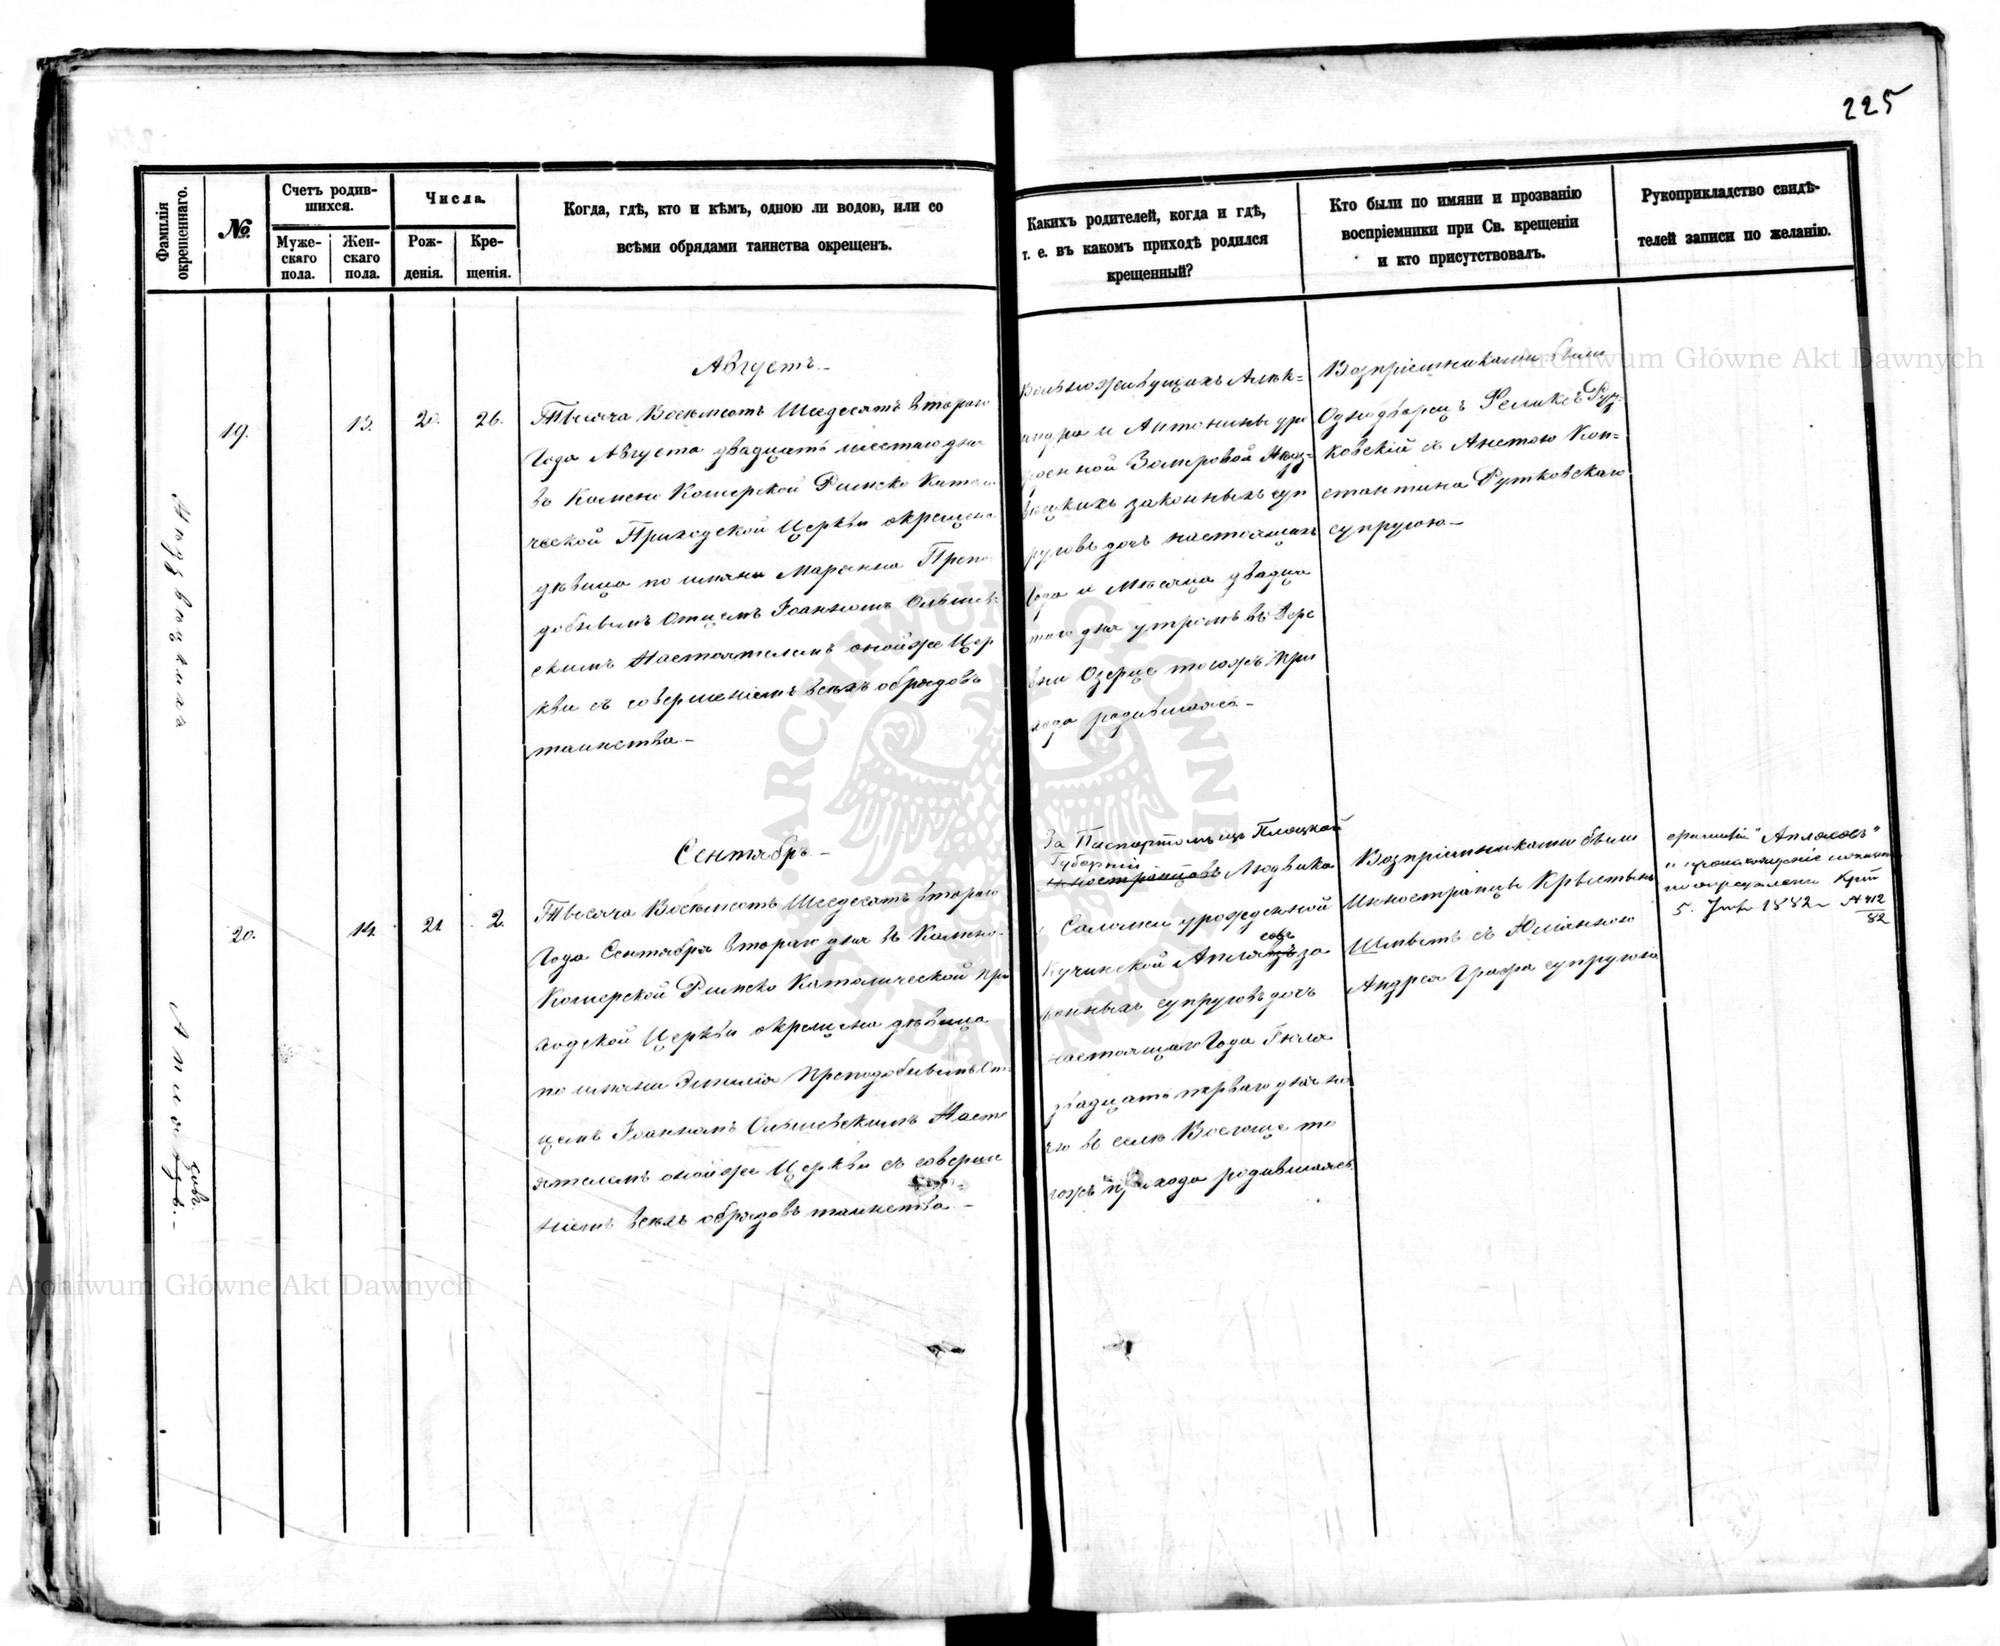 225
Фамилія
окрещеннаго.
№
Счетъ родив-
шихся.
Муже-
скаго
пола.
Жен-
скаго
пола.
Числа.
Рож-
денія.
Кре-
щенія.
Когда, гдѣ, кто и кѣмъ, одною ли водою, или со
всѣми обрядами таинства окрещенъ.
Какихъ родителей, когда и гдѣ,
т. е. въ какомъ приходѣ родился
крещенный?
Кто были по имяни и прозванію
воспріемники при Св. крещеніи
и кто присутствовалъ.
Рукоприкладство свидѣ-
телей записи по желанію.
19.
13.
20.
26.
Августъ.-
Тысяча Восемсотъ Шесдесятъ втораго
Года Августа двадцать шестаго дня
въ Камено Коширской Римско Катали
ческой Приходской Церкви окрещена
дѣвица по имяни Марянна Препо
добнымъ Отцемъ Іоанномъ Ольшев-
скимъ Настоятелемъ онойже Цер
кви съ совершеніемъ всѣхъ обрядовъ
таинства-
Вольноживущихъ Алек-
андра и Антонины уро
законныхъ суп
руговъ дочь настоящаго
Года и Мѣсяца двадца
таго дня утромъ въ Дере
вни Озерце тогожъ при
хода родившаяся-
Воспріемниками были
Однодворецъ Феликсъ Рут-
ковскій съ Анетою Кон-
стантина Рутковскаго
супругою-
20.
14.
21.
2.
Сентябрь.-
Тысяча Восемсотъ Шесдесятъ втораго
Года Сентября втораго дня въ Камено-
Коширской Римско Католической при
ходской Церкви окрещена дѣвица
по имяни Эмилія Преподобнымъ От
цемъ Іоанномъ Ольшевскимъ Насто
ятелемъ онойже Церкви съ соверше
ніемъ всѣхъ обрядовъ таинства-
За Паспортомъ изъ Плоцкой
Губерніи
иностранцовъ Людвика
Саломеи урожденной
Кучинской за
конныхъ супруговъ дочь
настоящаго Года Іюля
двадцать перваго дня но
чю въ селѣ то
гожъ прихода родившаяся
Воспріемниками были
Иностранцы Крыстынъ
Шмытъ съ Юліанною
Андрея Графа супругою
5. 1882 № 412
82
Archiwum Główne Akt Dawnych
Archiwum Główne Akt Dawnych
ARCHIWUM GŁÓWNE AKT DAWNYCH